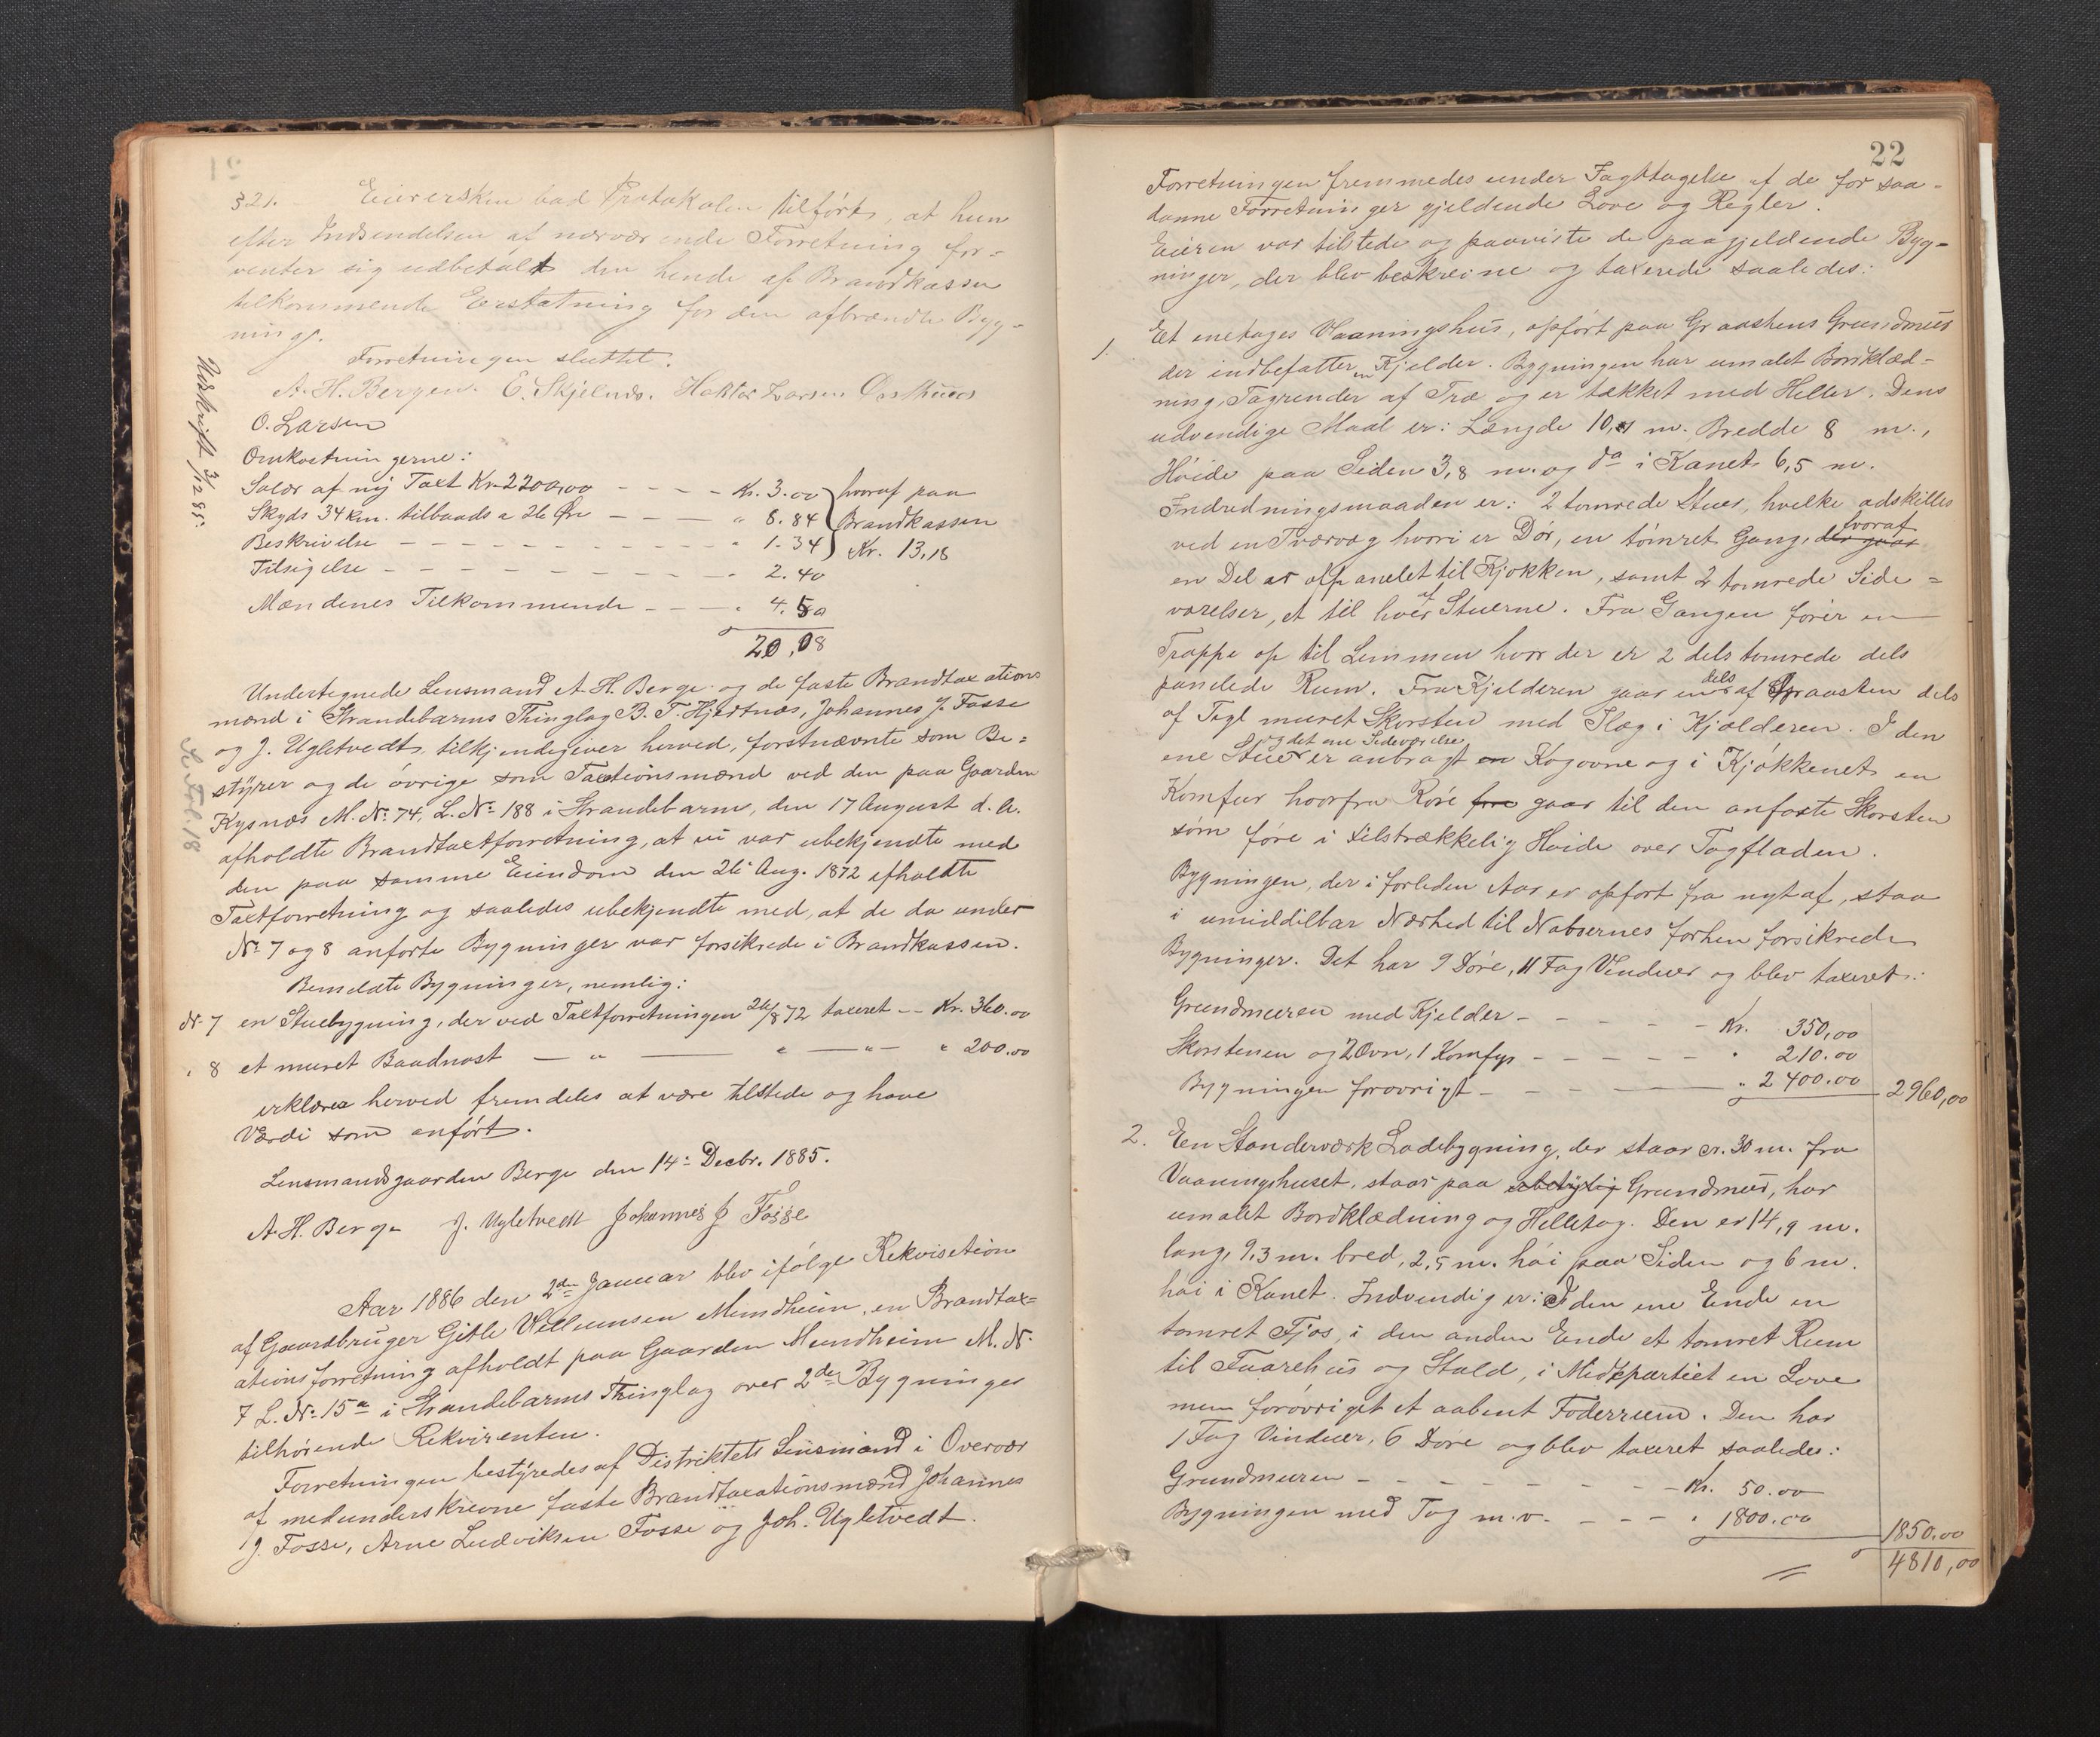 §21. Eierersken bad Protokolen tilført, at hun
efter Indsendelsen af nærværende Forretning for-
venter sig udbetalt den hende af Brandkassen
tilkommende Erstatning for den afbrændte Byg-
ning.
Forretningen sluttet.
A. H. Berge. E. Skjelnæs. Haktor Larsen
O. Larsen
Udskrift 3/12 85.
Omkostningerne:
Salær af ny Taxt Kr. 2200,00 - - - - Kr. 3.00 hvoraf paa
Skyds 34 km. tilbaads a 26 Øre - - - „ 8.84 Brandkassen
Beskrivelse - - - - - - - - „ 1.34 Kr. 13,18
Tilsigelse - - - - - - - - „ 2.40
Mændenes Tilkommende - - - „ 4.50
20,08
Undertegnede Lensmand A. H. Berge og de faste Brandtaxations
mænd i Strandebarms Thinglag B. T. Hjertnæs, Johannes J. Fosse
og J. Ugletvedt, tilkjendegiver herved, førstnævnte som Be-
styrer og de øvrige som Taxtionsmænd ved den paa Gaarden
Kysnæs M. No. 74, L. No. 188 i Strandebarm, den 17 August d. A.
afholdte Brandtaxtforretning, at vi var ubekjendte med
den paa samme Eiendom den 26 Aug. 1872 afholdte
Taxtforretning og saaledes ubekjendte med, at de da under
No. 7 og 8 anførte Bygninger var forsikrede i Brandkassen.
Se Fol. 18
Bemeldte Bygninger, nemlig:
No. 7 en Stuebygning, der ved Taxtforretningen 26/8 72 taxeret - - Kr. 360.00
„ 8 et muret Baadnøst — „ — „ — „ — „ 200.00
erklæres herved fremdeles at være tilstede og have
Værdi som anført.
Lensmandsgaarden Berge den 14. Decbr. 1885.
A. H. Berge J. Ugletvedt Johannes J Fosse
Aar 1886 den 2den Januar blev ifølge Rekvisition
af Gaardbruger Gitle Villumsen Mundheim, en Brandtax-
ationsforretning afholdt paa Gaarden Mundheim M. No.
7 L. No. 15a i Strandebarms Thinglag over 2de Bygninger
tilhørende Rekvirenten.
Forretningen bestyredes af Distriktets Lensmand i Overvær
af medunderskrevne faste Brandtaxationsmænd Johannes
J. Fosse, Arne Ludviksen Fosse og Joh. Ugletvedt.
22
Forretningen fremmedes under Iagttagelse af de for saa-
danne Forretninger gjeldende Love og Regler.
Eieren var tilstede og paaviste de paagjeldende Byg-
ninger, der blev beskrevne og taxerede saaledes:
1. Et enetages Vaaningshus, opført paa Graastens Grundmur
der indbefatter en Kjelder. Bygningen har umalet Bordklæd-
ning, Tagrender af Træ og er tækket med Heller. Dens
udvendige Maal er: Længde 10,1 m. Bredde 8 m.,
Høide paa Siden 3,8 m. og do i Kanet 6,5 m.
Indredningsmaaden er: 2 tømrede Stuer, hvilke adskilles
ved en Tværvæg hvori er Dør, en tømret Gang, der gaar hvoraf
en Del er afpanelet til Kjøkken, samt 2 tømrede Side-
værelser, et til hver af Stuerne. Fra Gangen fører en
Trappe op til Lemmen hvor der er 2 dels tømrede dels
panelede Rum. Fra Kjelderen gaar en dels af Graasten dels
af Tegl muret Skorsten med Ilæg i Kjælderen. I den
ene Stue og det ene Sideværelse er anbragt en Kogovne og i Kjøkkenet en
Komfur hvorfra Røre føre gaar til den anførte Skorsten
som føre i tilstrækkelig Høide over Tagfladen.
Bygningen, der i forleden Aar er opført fra nyt af, staa
i umiddelbar Nærhed til Naboernes forhen forsikrede
Bygninger. Det har 9 Døre, 11 Fag Vinduer og blev taxeret:
Grundmuren med Kjelder - - - - - Kr. 350,00
Skorstenen og 2 Ovn, 1 Komfyr - - - - - „ 210.00
Bygningen forøvrigt - - - — „ 2400.00 2960,00
2. En Standerværk Ladebygning, der staar cr. 30 m. fra
Vaaningshuset, staar paa ubetydelig Grundmur, har
umalet Bordklædning og Helletag. Den er 14,9 m.
lang, 9,3 m. bred, 2,5 m. høi paa Siden og 6 m.
høi i Kanet. Indvendig er: I den ene Ende en
tømret Fjøs, i den anden Ende et tømret Rum
til Faarehus og Stald, i Midtpartiet en Love
men forøvriget et aabent Foderrum. Den har
1 Fag Vinduer, 6 Døre og blev taxeret saaledes:
Grundmuren - - - - - - - Kr. 50.00
Bygningen med Tag m.v. - - - „ 1800.00 1850.00
4810,00